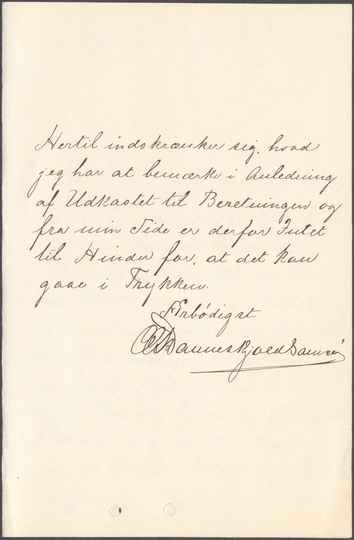 Hertil indskrænker sig, hvad
jeg har at bemærke i Anledning
af Udkastet til Beretningen og
fra min Side er derfor Intet
til Hinder for, at det kan
gaae i Trykken.
Ærbødigst
Danneskjold Samsøe